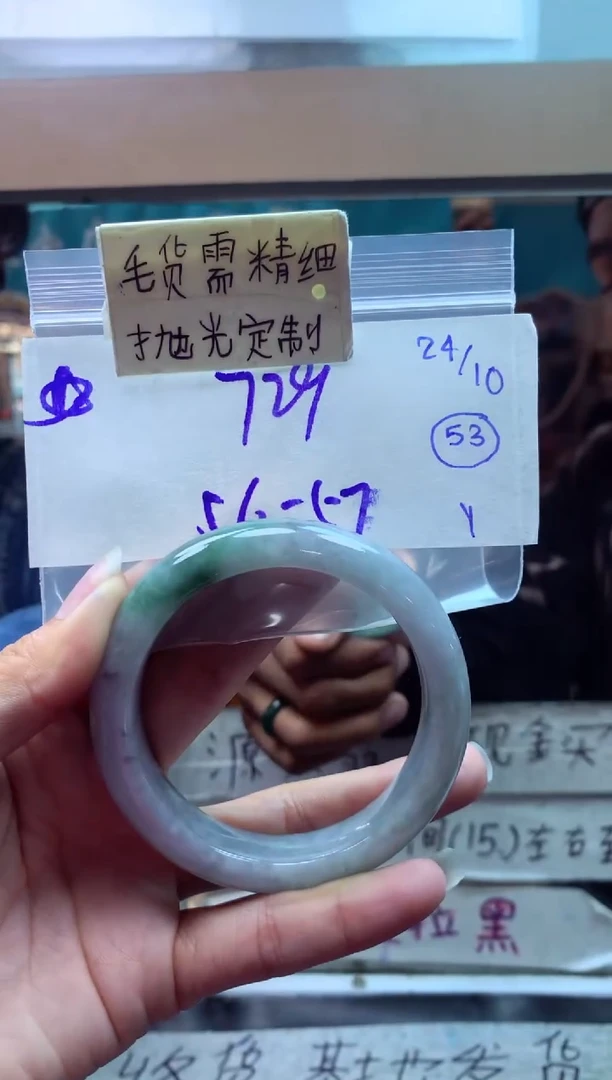 毛货需精细
抛光定制
724
24/10
53
56-57
Y
源
现金买
间(15)左右
黑
收货 基地发货